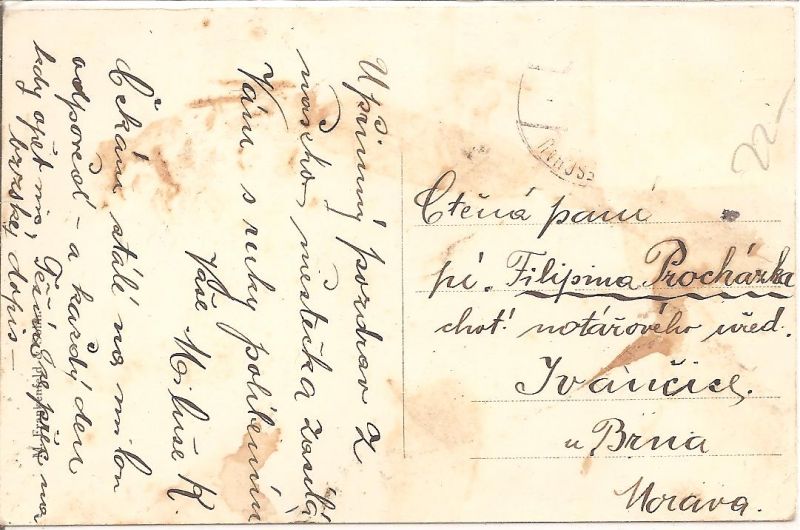 Upřimný pozdrav z
našeho městečka zasílá
Vám s ruky políbením
Vaše Miluše K.
Čekám stálé na milou
odpověď – a každý den
kdy opět na,
brzský dopis –
Ctěná paní
pí. Filipina Procházka
choť notářového uřed.
Ivančice.
u Brna
Morava.
22-